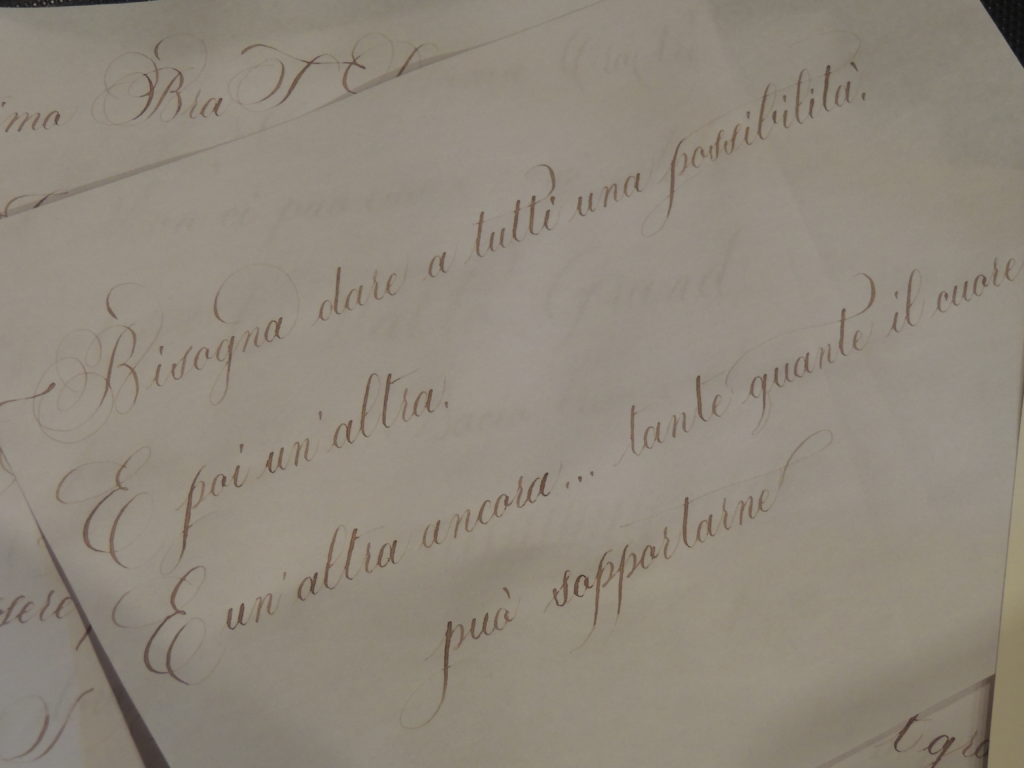 Bra
Bisogna dare a tutti una possibilità.
E poi un'altra.
E un'altra ancora... tante quante il cuore
può sopportarne